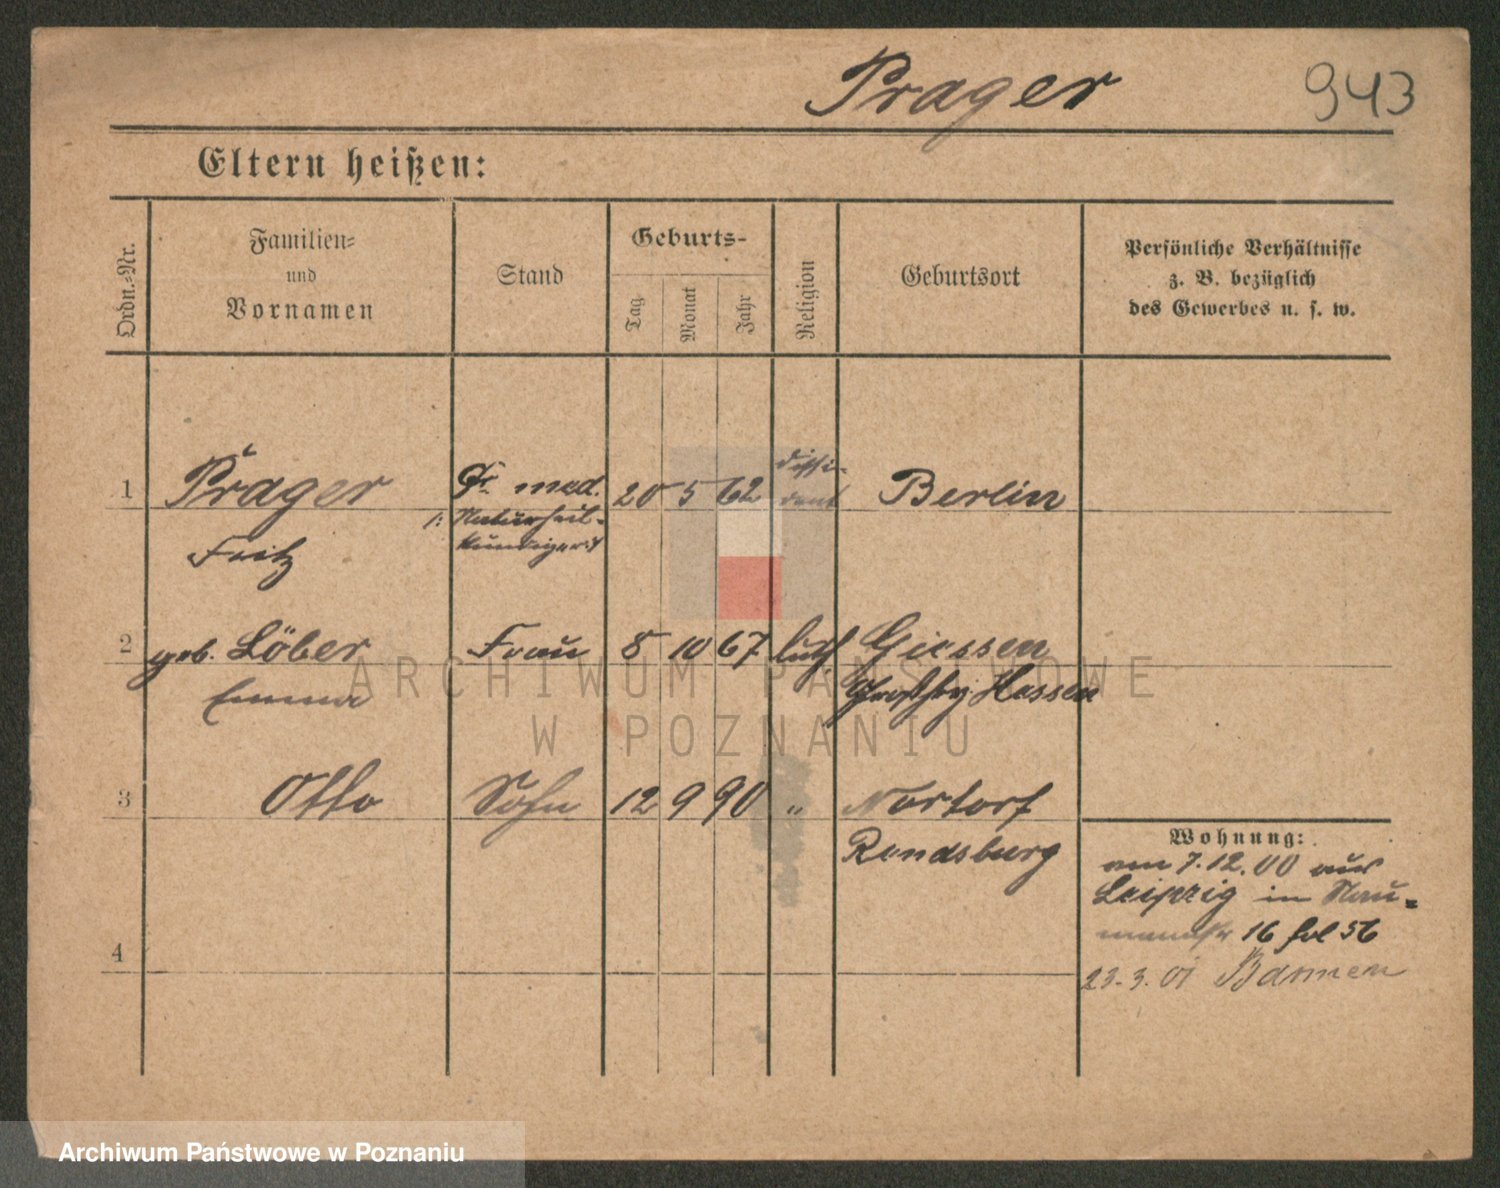 Prager 943
Eltern heißen:
Ordn.-Nr.
Familien-
und
Vornamen
Stand
Geburts-
Tag
Monat
Jahr
Religion
Geburtsort
Persönliche Verhältnisse
z. B. bezüglich
des Gewerbes u. s. w.
1 Prager Dr. med. 20 5 62 dissi- Berlin
dent
Naturheil-
Fritz kundiger
2 geb. Löber Frau 8 10 67 luth. Giessen
Emma Hessen
3 Otto Sohn 12 9 90 " Nortorf
Rendsburg
Wohnung:
am 7.12.00 aus
Leipzig in Nau-
mannstr 16 fol 56
4
23.3.01 Barmen
ARCHIWUM PAŃSTWOWE
W POZNANIU
Archiwum Państwowe w Poznaniu